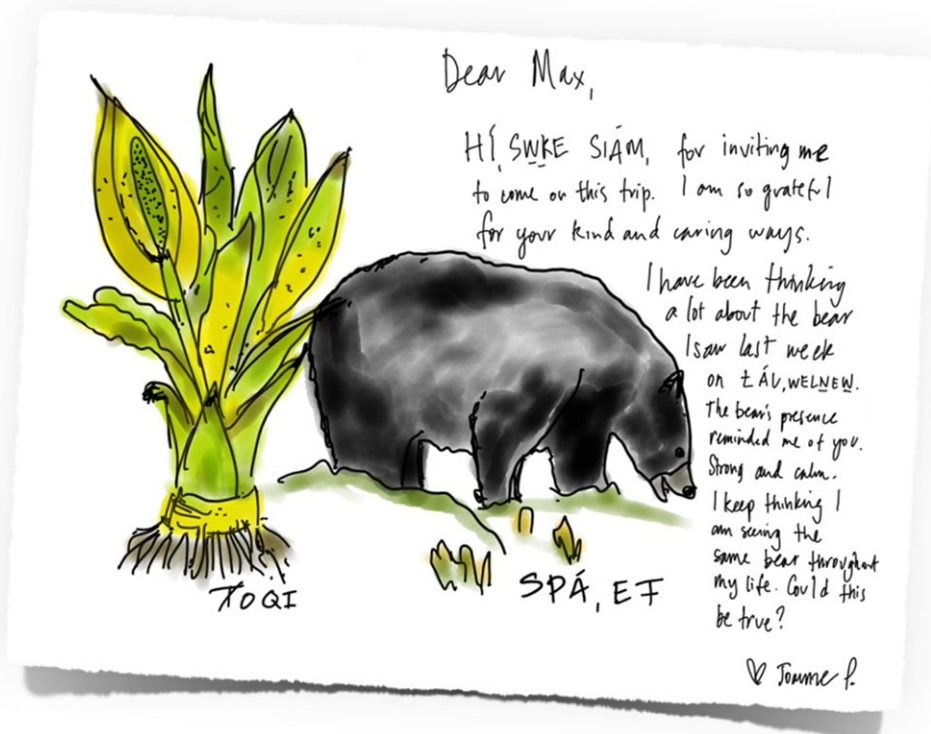 Dear Max,
HÍ, SW̱ḴE SIÁM, for inviting me
to come on this trip. I am so grateful
for your kind and caring ways.
I have been thinking
a lot about the bear
I saw last week
on ȽÁU,WELṈEW̱.
The bear's presence
reminded me of you.
Strong and calm.
I keep thinking I
am seeing the
same bear throughout
my life. Could this
be true?
♡ P.
ȾOQI
SPÁ,EŦ